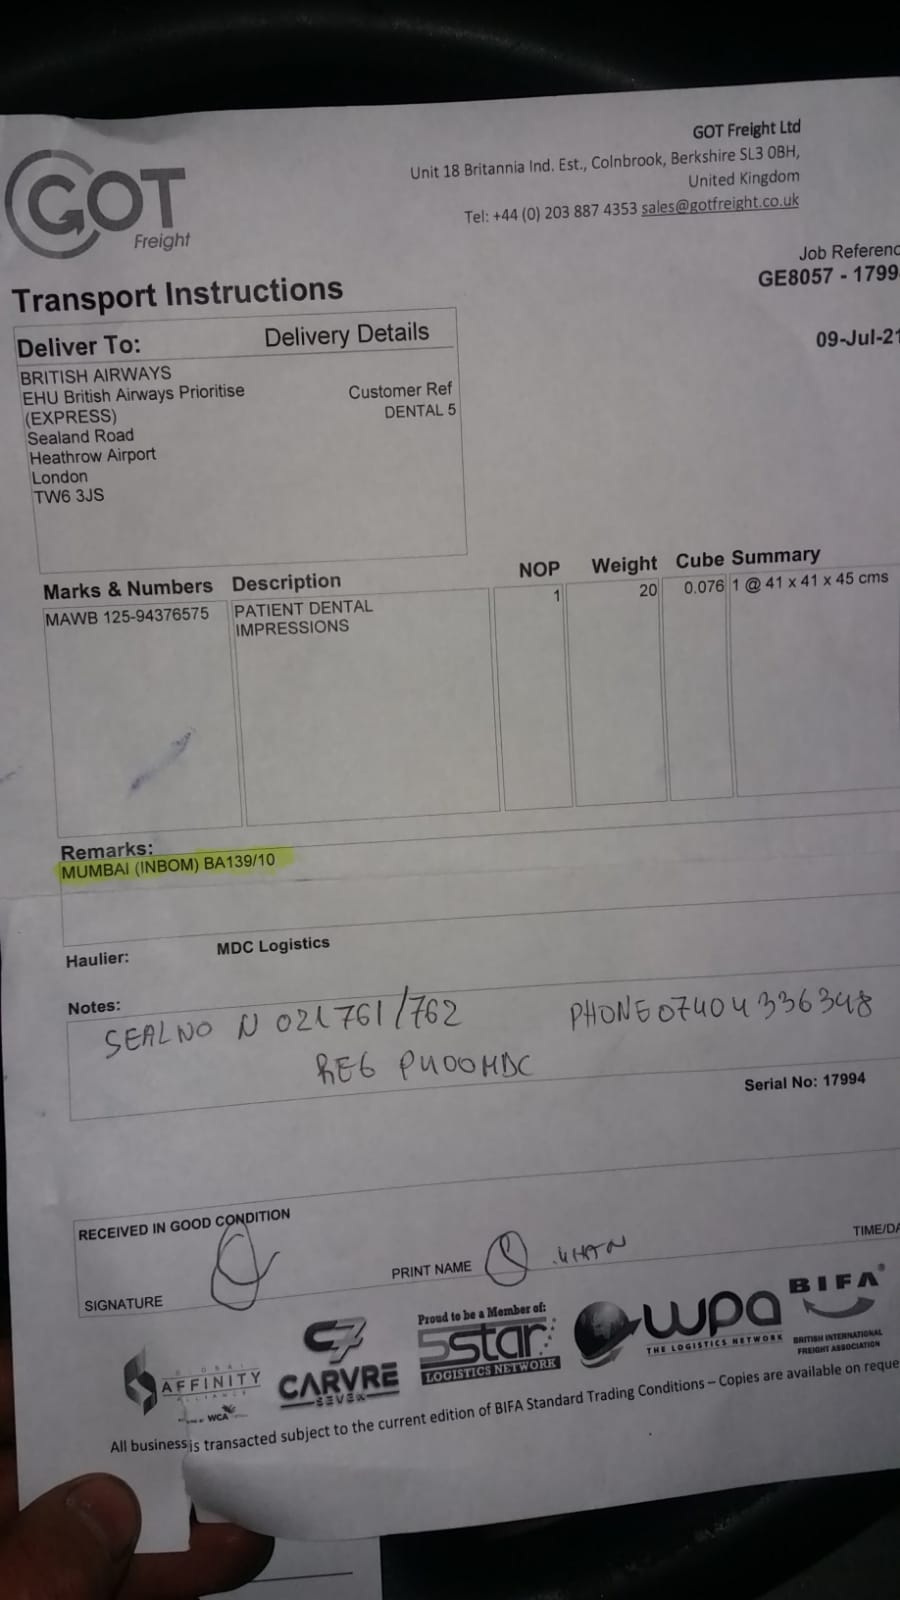 GOT
Freight
GOT Freight Ltd
Unit 18 Britannia Ind. Est., Colnbrook, Berkshire SL3 0BH,
United Kingdom
Tel: +44 (0) 203 887 4353 sales@gotfreight.co.uk
Job Referenc
GE8057 - 1799
Transport Instructions
09-Jul-21
Deliver To: Delivery Details
BRITISH AIRWAYS
EHU British Airways Prioritise
(EXPRESS)
Sealand Road
Heathrow Airport
London
TW6 3JS
Customer Ref
DENTAL 5
Marks & Numbers Description NOP Weight Cube Summary
MAWB 125-94376575 PATIENT DENTAL 1 20 0.076 1 @ 41 x 41 x 45 cms
IMPRESSIONS
Remarks:
MUMBAI (INBOM) BA139/10
Haulier: MDC Logistics
Notes:
SEAL NO N 021761/762 PHONE 07404336348
REG P400MDC
Serial No: 17994
RECEIVED IN GOOD CONDITION
SIGNATURE
PRINT NAME
TIME/DA
GLOBAL
AFFINITY
ALLIANCE
WCA
C7
CARVRE
SEVEN
Proud to be a Member of:
5star
LOGISTICS NETWORK
wpa
THE LOGISTICS NETWORK
BIFA
BRITISH INTERNATIONAL
FREIGHT ASSOCIATION
All business is transacted subject to the current edition of BIFA Standard Trading Conditions – Copies are available on reque